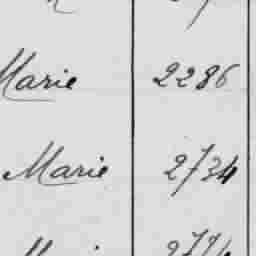 Marie 2286
Marie 2734